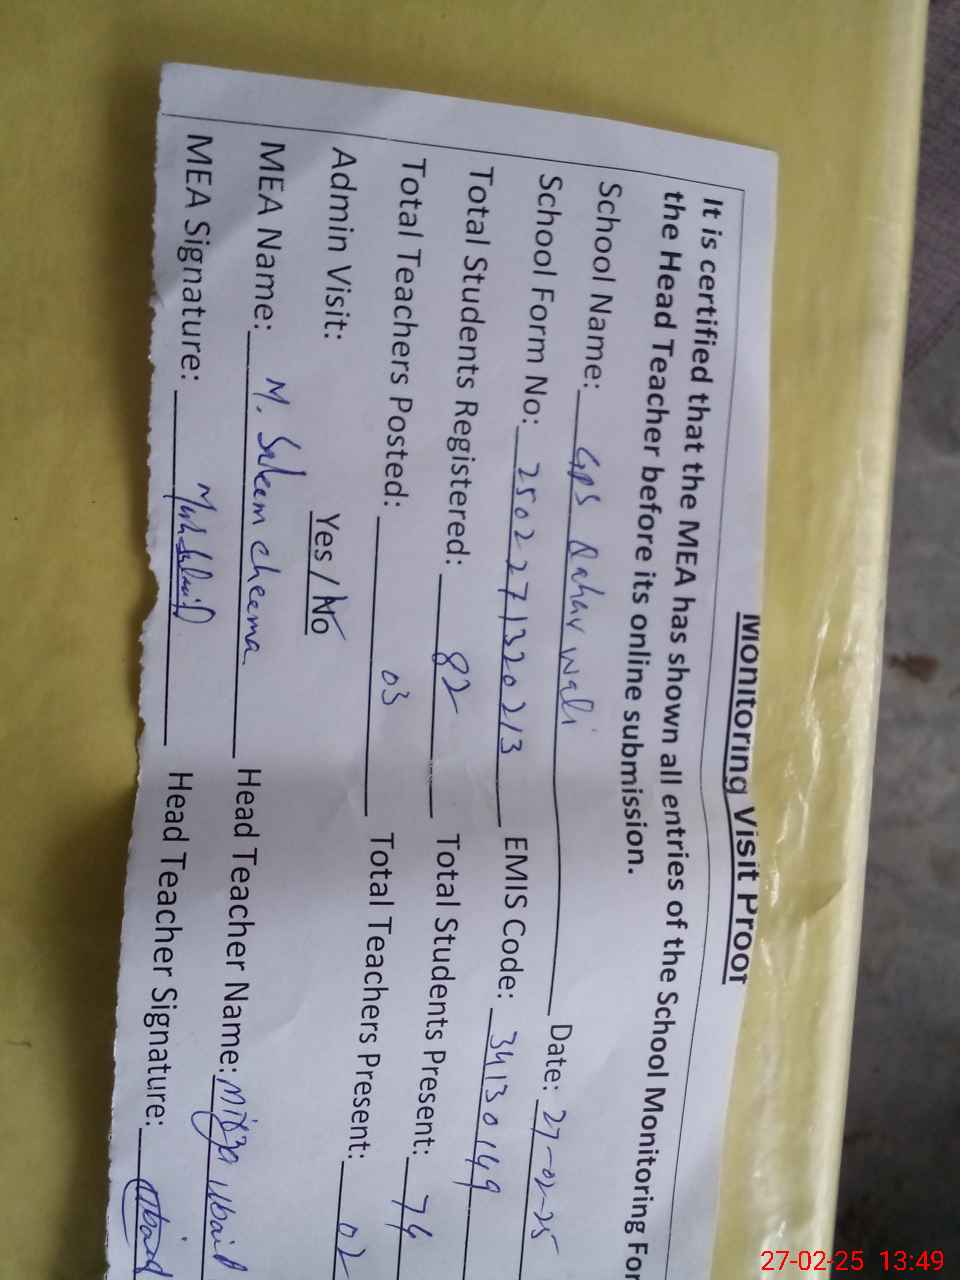 Monitoring Visit Proof
It is certified that the MEA has shown all entries of the School Monitoring For
the Head Teacher before its online submission.
School Name: GPS Wali Date: 27-02-25
School Form No: 2502271320213 EMIS Code: 34130149
Total Students Registered: 82 Total Students Present: 74
Total Teachers Posted: 03 Total Teachers Present: 02
Admin Visit: Yes / No
MEA Name: M. Saleem cheema Head Teacher Name: Mirza Ubaid
MEA Signature: Head Teacher Signature: Ubaid
27-02-25 13:49